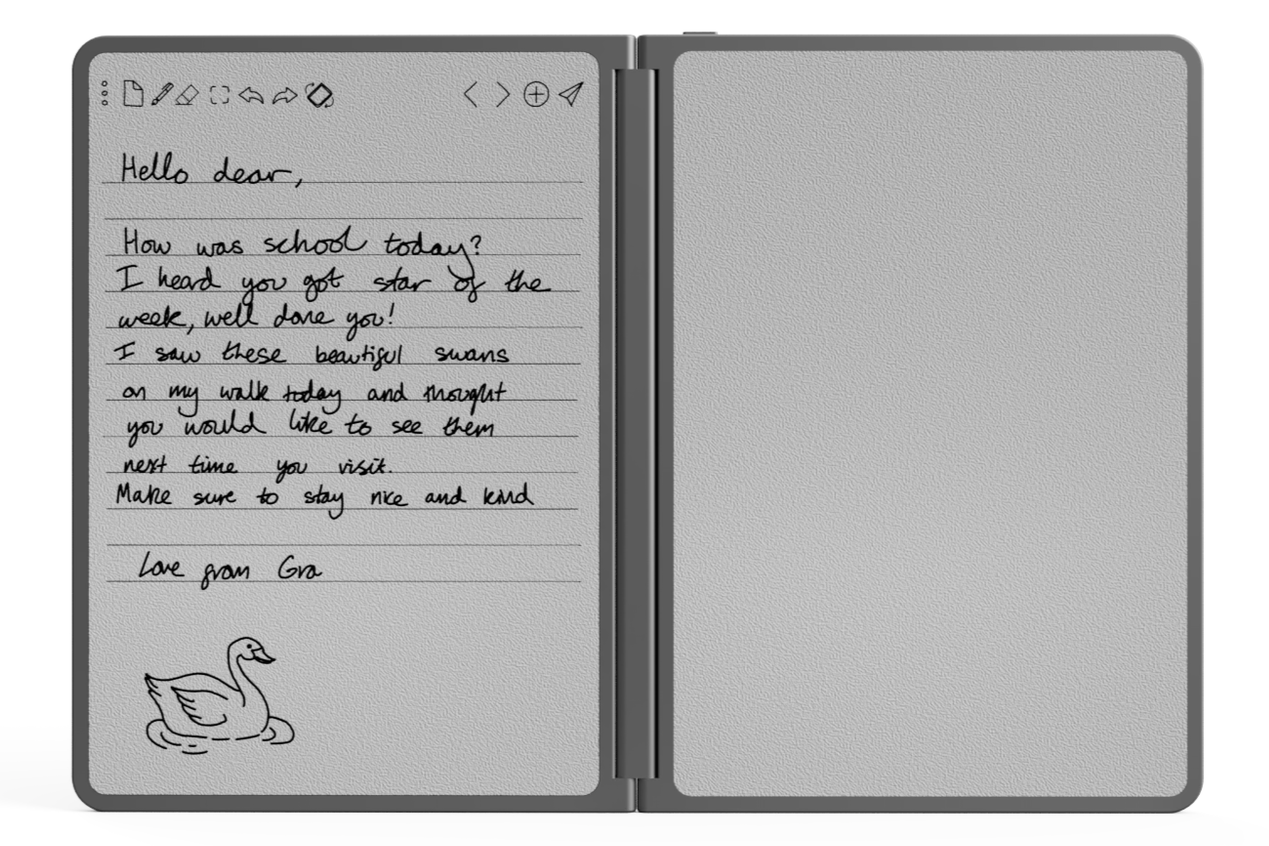 Hello dear,
How was school today?
I heard you got star of the
week, well done you!
I saw these beautiful swans
on my walk today and thought
you would like to see them
next time you visit.
Make sure to stay nice and kind
Love from Gra